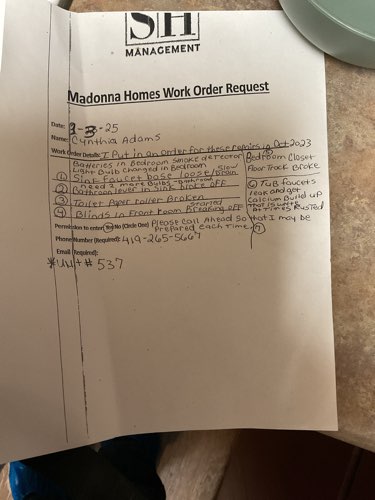 SH
MANAGEMENT
Madonna Homes Work Order Request
Date: 3-25
Name: Cynthia Adams
Work Order Details: I Put in an order for these repairs in Oct 2023
Batteries in Bedroom Smoke detector
Light Bulb Changed in Bedroom
① Sink Faucet base loose/ slow Drain
need 2 more Bulbs - Bathroom
② Bathroom lever in Sink broke off
③ Toilet Paper roller Broken
④ Blinds in Front Room started Breaking off
Bedroom Closet
Floor Track Broke
⑥ Tub Faucets
leak and get
Calcium Build up
that is white
At times Rusted
Permission to enter: Yes No (Circle One) Please Call Ahead So that I may be
Prepared Each Time. ⑦
Phone Number (Required): 419-265-5667
Email (Required):
*Unit # 537